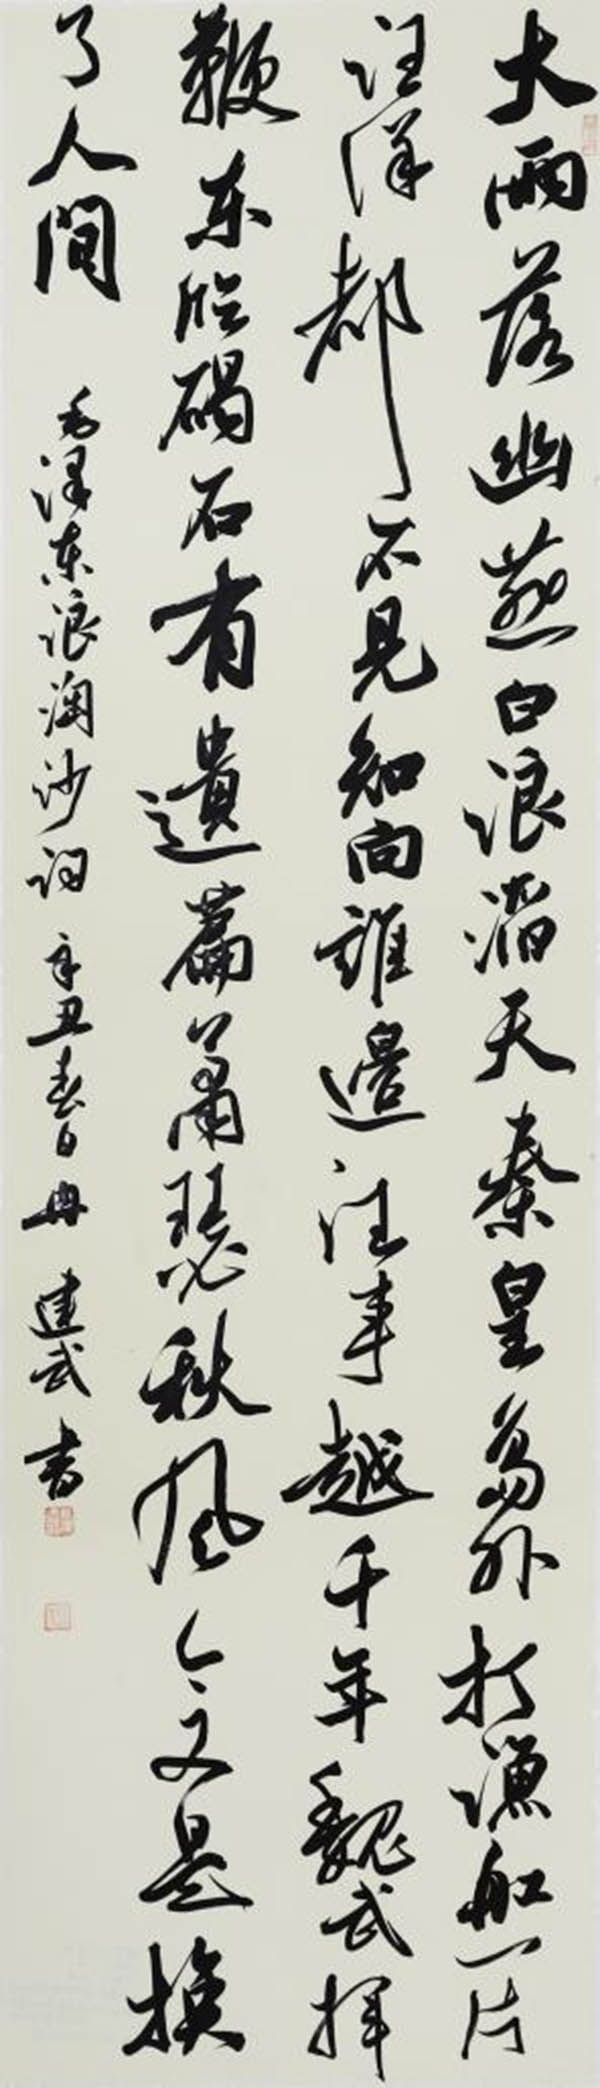 大雨落幽燕白浪滔天秦皇島外打漁船一片
汪洋都不見知向誰邊往事越千年魏武揮
鞭東臨碣石有遺篇蕭瑟秋風今又是換
了人間 毛澤東浪淘沙詞 辛丑春日冉建武書